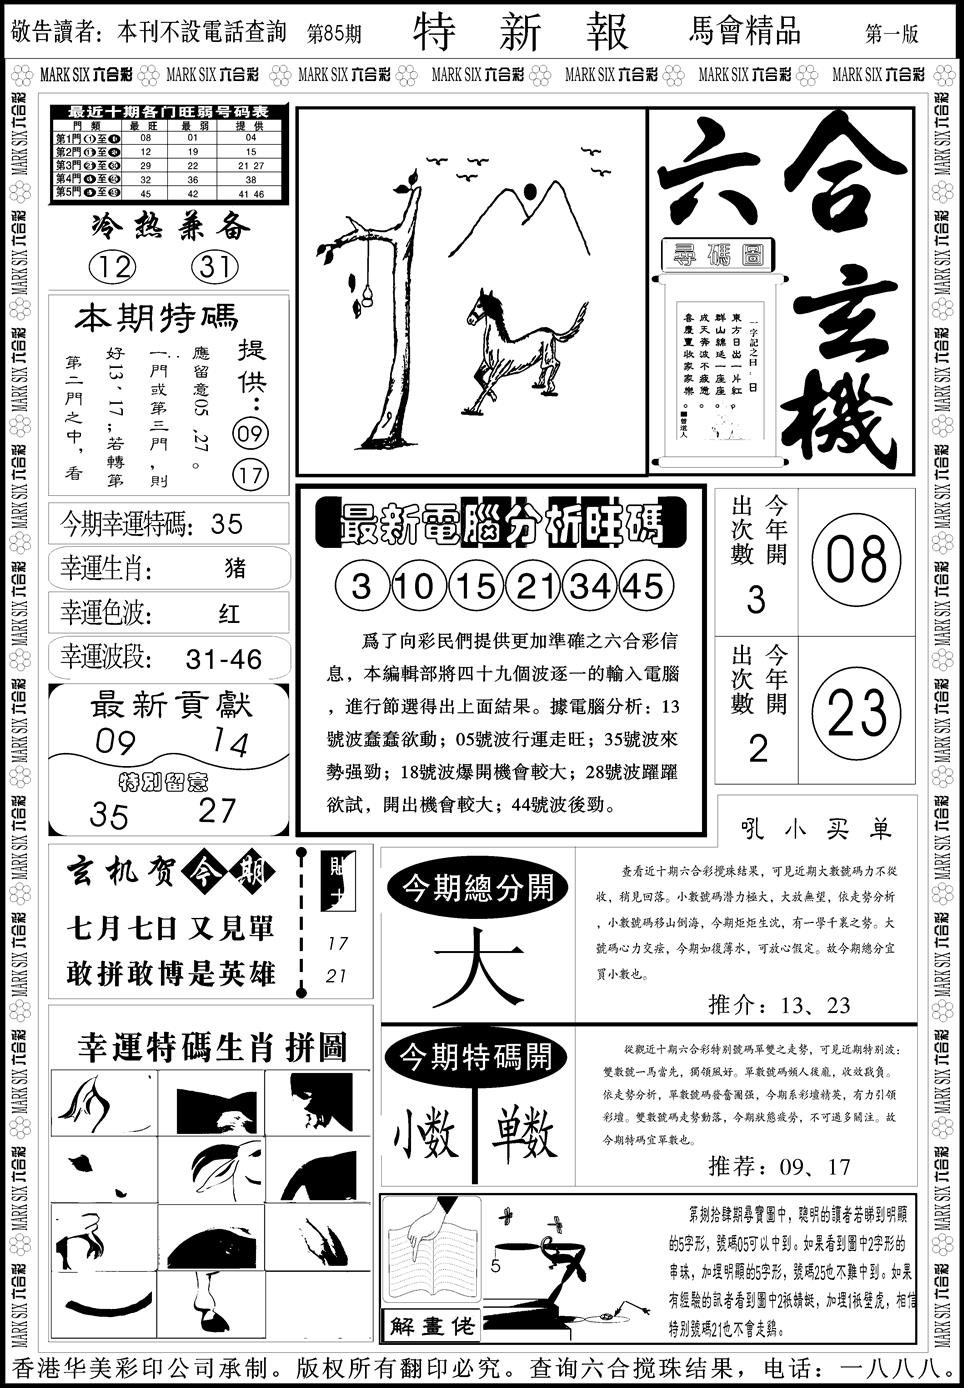 敬告讀者：本刊不設電話查詢 第85期 特新報 馬會精品 第一版
MARK SIX 六合彩 MARK SIX 六合彩 MARK SIX 六合彩 MARK SIX 六合彩 MARK SIX 六合彩 MARK SIX 六合彩 MARK SIX 六合彩
最近十期各门旺弱号码表
門類 最旺 最弱 提供
第1門 08 01 04
第2門 12 19 15
第3門 29 22 21 27
第4門 32 36 38
第5門 45 42 41 46
冷热兼备
12 31
本期特碼
提供：
09
17
應留意05.27。
一門或第三門，則
好13、17；若轉第
第二門之中，看
今期幸運特碼：35
幸運生肖：猪
幸運色波：红
幸運波段：31-46
最新貢獻
09 14
特别留意
35 27
六合玄機
尋碼圖
一字記之曰：日
東方日出一片紅，
群山綿延一座座。
成天奔波不疲憊，
喜慶豐收家家樂。
曾道人
最新電腦分析旺碼
3 10 15 21 34 45
爲了向彩民們提供更加準確之六合彩信
息，本編輯部將四十九個波逐一的輸入電腦
，進行節選得出上面結果。據電腦分析：13
號波蠢蠢欲動；05號波行運走旺；35號波來
勢强勁；18號波爆開機會較大；28號波躍躍
欲試，開出機會較大；44號波後勁。
今年開
出次數
3
08
今年開
出次數
2
23
玄机贺今期
七月七日又見單
敢拼敢博是英雄
貼士
17
21
今期總分開
大
吼小买单
查看近十期六合彩攪珠結果，可見近期大數號碼力不從
收，稍見回落。小數號碼潜力極大，大放無望，依走勢分析
，小數號碼移山倒海，今期炬炬生沈，有一學千裏之勢。大
號碼心力交瘁，今期如復薄水，可放心假定。故今期總分宜
買小數也。
推介：13、23
今期特碼開
小数 单数
從觀近十期六合彩特别號碼單雙之走勢，可見近期特别波：
雙數號一馬當先，獨領風好。單數號碼頻人後龐，收效我負。
依走勢分析，單數號碼發奮圖强，今期系彩壇精英，有力引領
彩壇。雙數號碼走勢動落，今期狀態疲勞，不可過多關注。故
今期特碼宜單數也。
推荐：09、17
幸運特碼生肖拼圖
解畫佬
5
第捌拾肆期尋寶圖中，聰明的讀者若睇到明顯
的5字形，號碼05可以中到。如果看到圖中2字形的
串珠，加埋明顯的5字形，號碼25也不難中到。如果
有經驗的訊者看到圖中2祗蜻蜓，加埋1祗壁虎，相信
特别號碼21也不會走鷄。
香港华美彩印公司承制。版权所有翻印必究。查询六合搅珠结果，电话：一八八八。